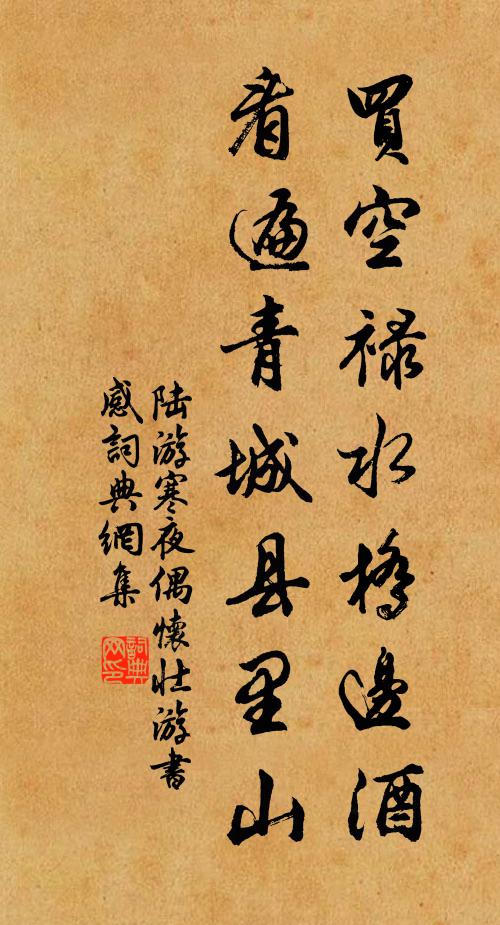 買空禄水橋邊酒
看遍青城县里山
陆游寒夜偶懷壮游書
感詞典網集
詞典
网印